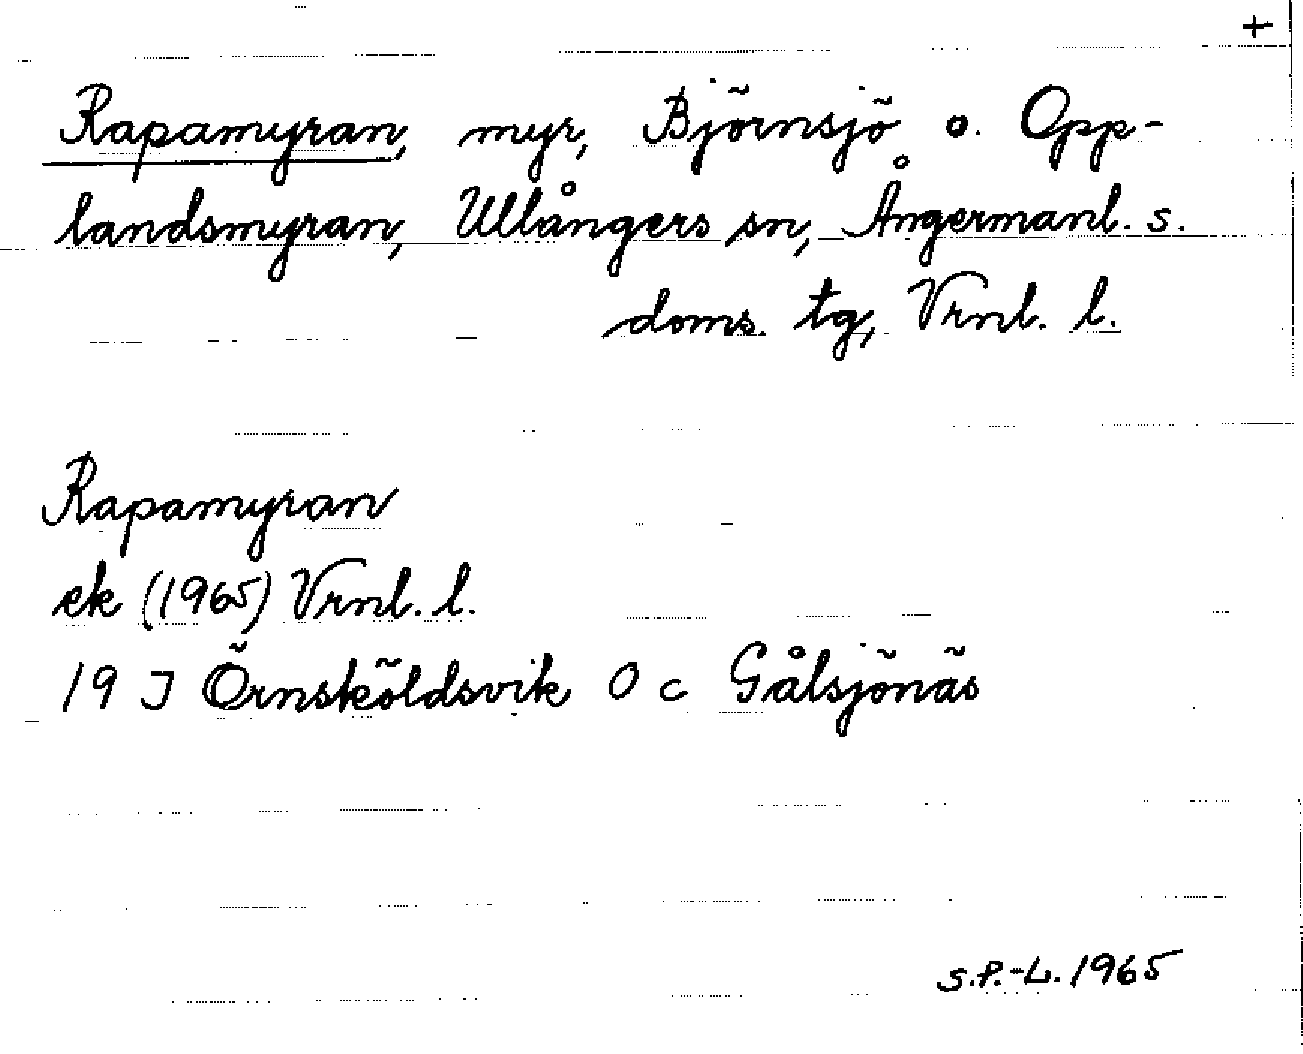 +
Rapamyran, myr, Björnsjö o. Opp-
landsmyran, Ullångers sn, Ångermanl. s.
doms. tg, Vrnl. l.
Rapamyran
ek (1965) Vrnl. l.
19 J Örnsköldsvik O c Gålsjönäs
S.P.-L. 1965